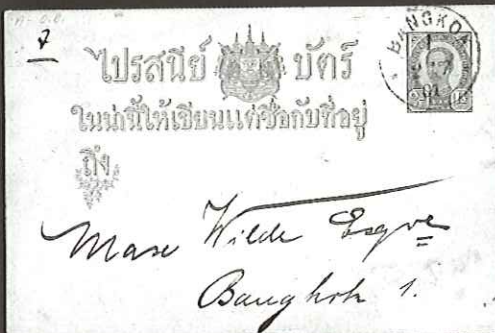 7
ไปรสนีย์ บัตร์
ในน่านี้ให้เขียนแต่ชื่อกับที่อยู่
ถึง
BANGKOK
Max Wilde Esqre
Bangkok 1.